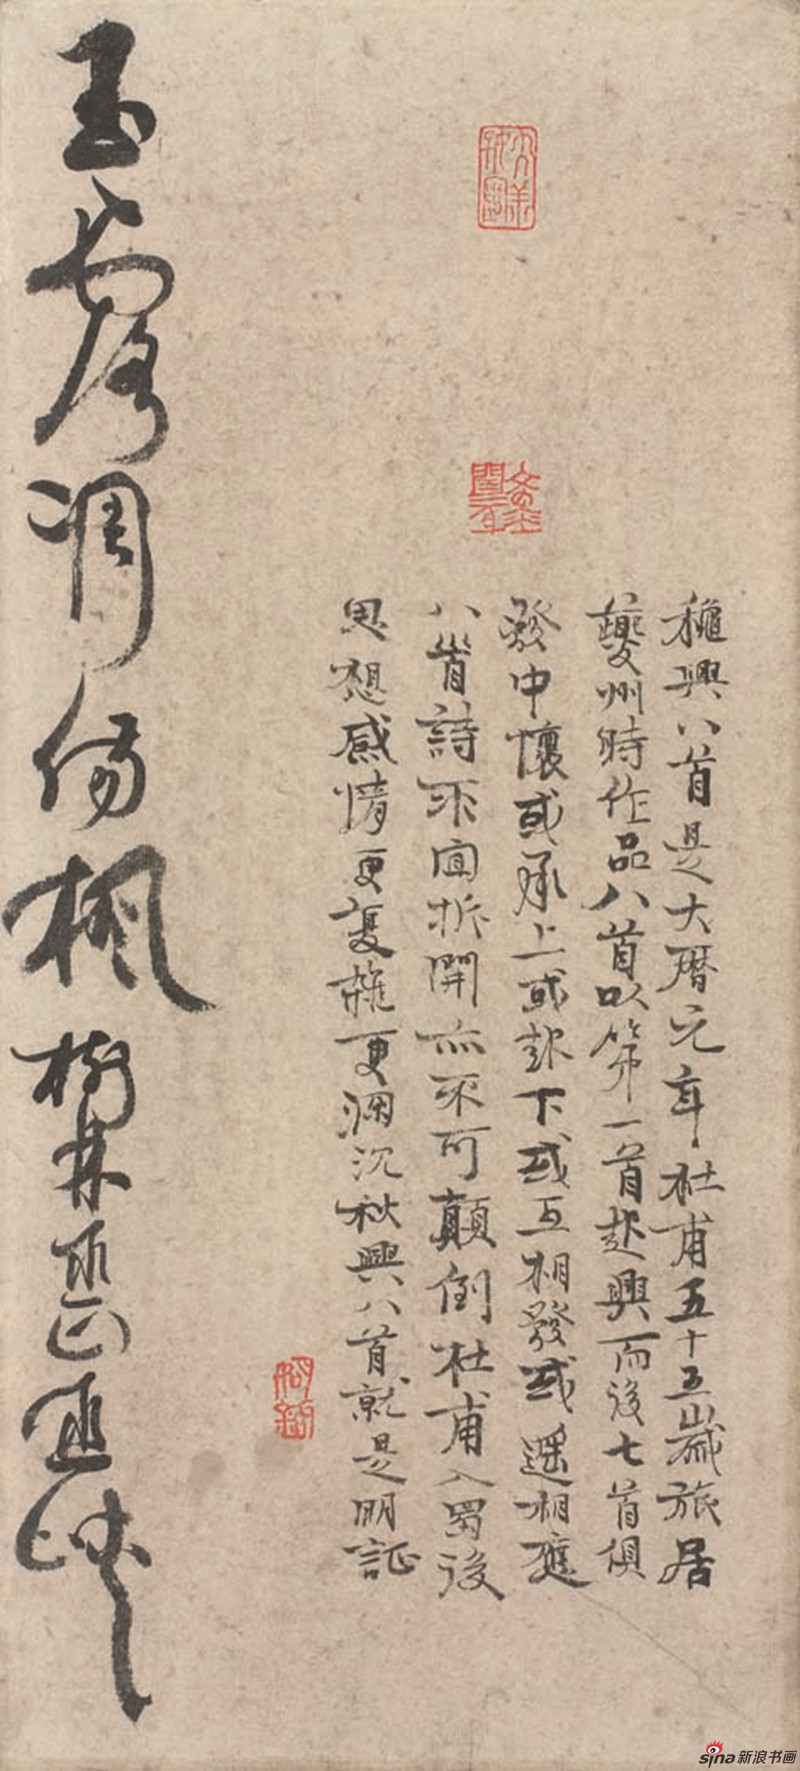 穐興八首是大暦元年杜甫五十五歲旅居
夔州時作品八首以第一首起興而後七首俱
發中懷或承上或起下或互相發或遥相應
八首詩不宜拆開亦不可顛倒杜甫入蜀後
思想感情更複雜更深沉秋興八首就是明証
玉露凋傷楓樹林巫山巫峽
sina新浪书画